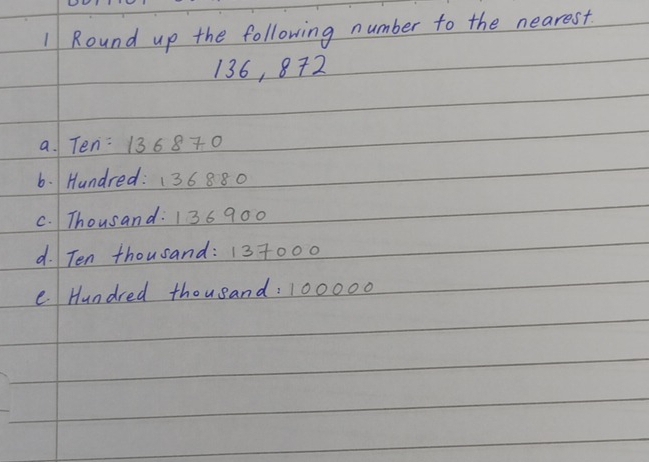 1 Round up the following number to the nearest.
136,872
a. Ten: 136870
b. Hundred: 136880
c. Thousand: 136900
d. Ten thousand: 137000
e. Hundred thousand: 100000